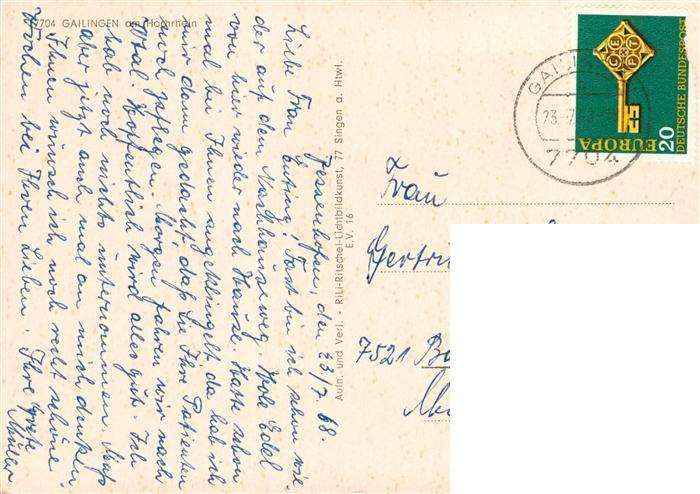 7704 GAILINGEN am Hochrhein
Jesenhofen, den 23/7. 68.
Liebe Frau Enting! Fast bin ich schon wie-
der auf dem Nachhauseweg. Hole Edel
von hier wieder nach Hause. Hatte schon
mal bei Ihnen angeklingelt da hab ich
mir dann gedacht, daß Sie Ihre Patienten
noch pflegen. Morgen fahren wir nach
Hoffentlich wird alles gut. Ich
hab noch nichts unternommen. Muß
aber jetzt auch mal an mich denken
Ihnen wünsch ich noch recht schöne
Wochen bei Ihren Lieben. Ihre Grete
Müller
Aufn. und Verl. - RiLi-Ritschel-Lichtbildkunst, 77 Singen a. Htwl.
E.V. 16
GAILI
23.-7.
7704
20
EUROPA
DEUTSCHE BUNDESPOST
CEPT
Frau
Gertri
7521 B